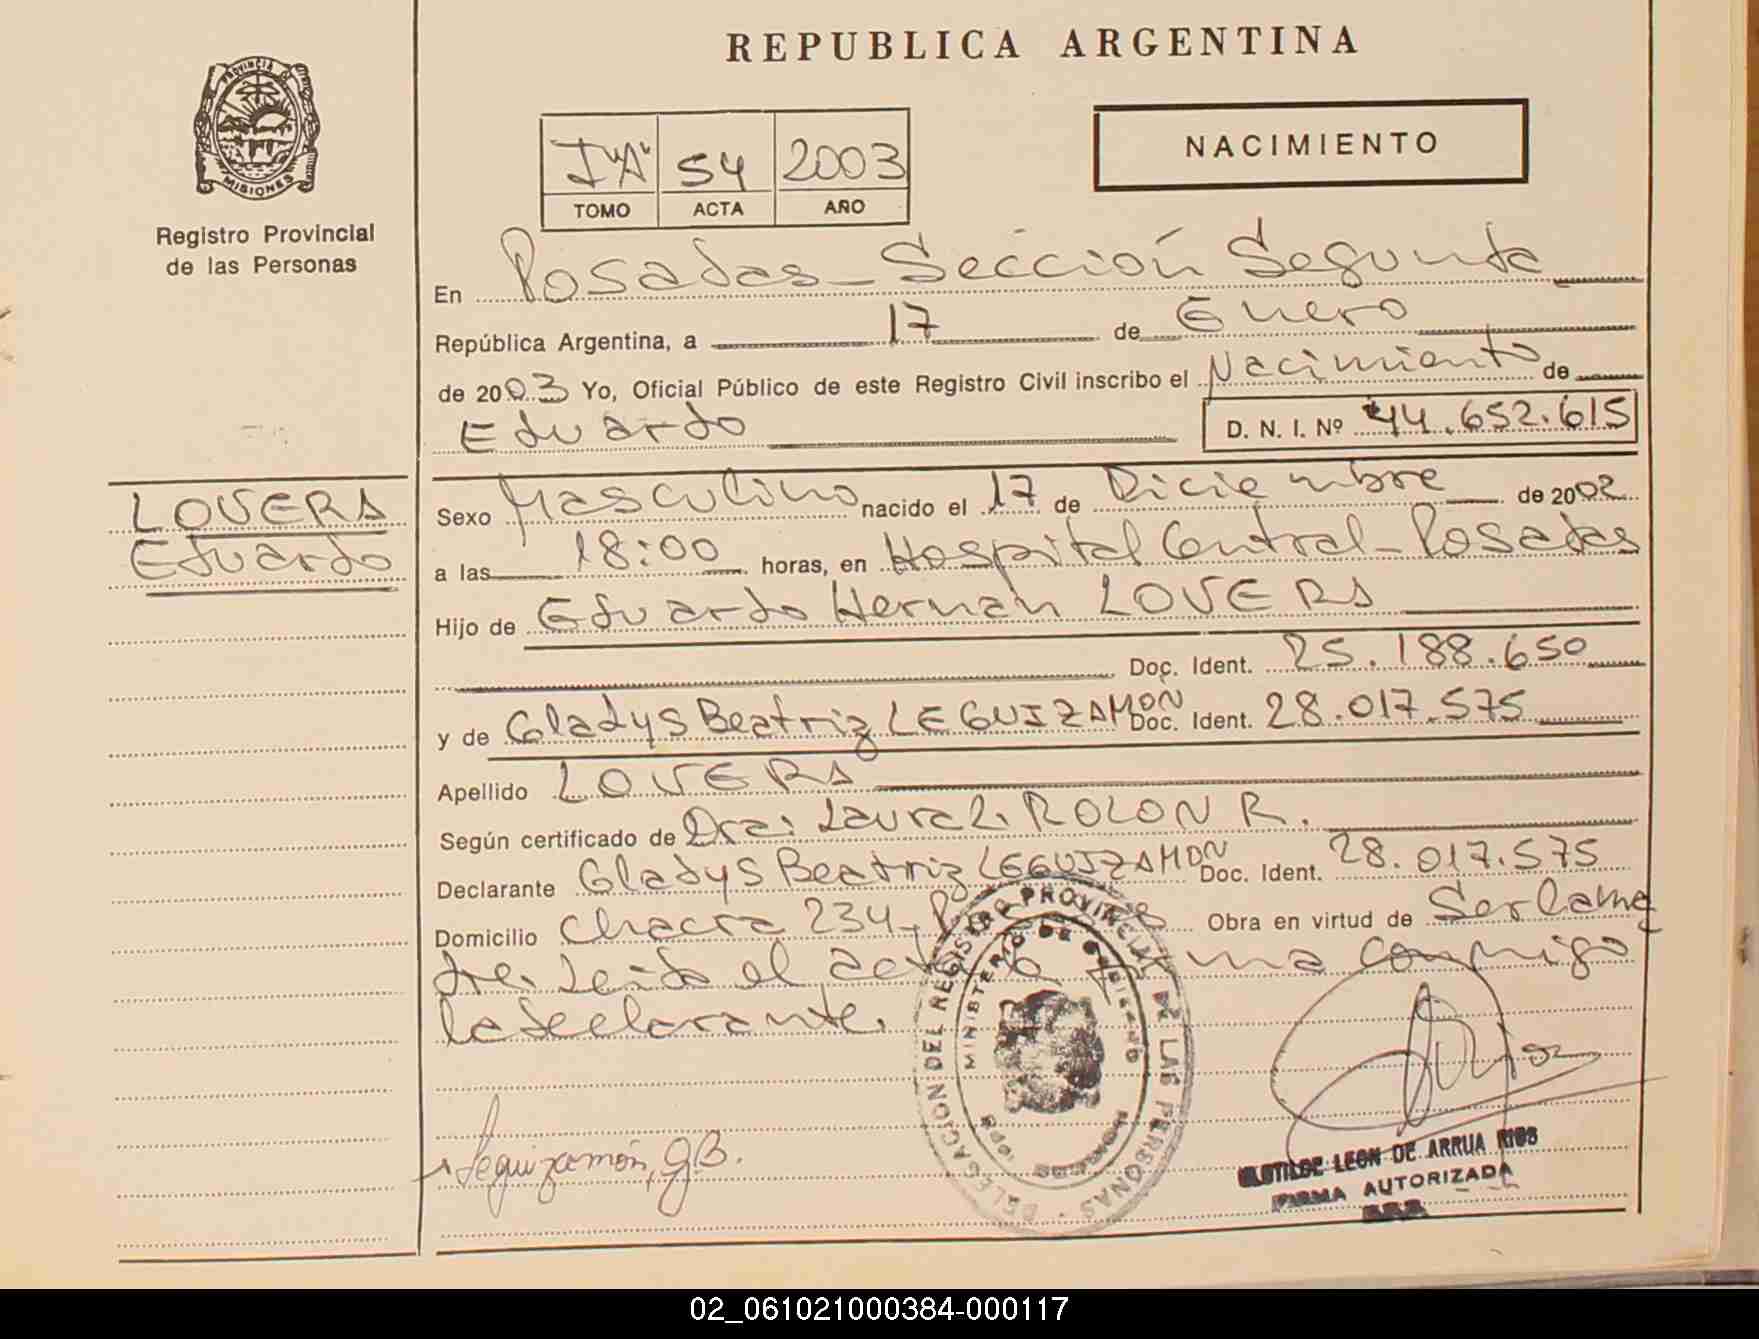 REPUBLICA ARGENTINA
PROVINCIA DE
MISIONES
Registro Provincial
de las Personas
I"A" 54 2003
TOMO ACTA AÑO
NACIMIENTO
En Posadas - Sección Segunda
República Argentina, a 17 de Enero
de 2003 Yo, Oficial Público de este Registro Civil inscribo el Nacimiento de
Eduardo D. N. I. Nº 44.652.615
LOVERA
Eduardo
Sexo Masculino nacido el 17 de Diciembre de 2002
a las 18:00 horas, en Hospital Central - Posadas
Hijo de Eduardo Hernán LOVERA
Doc. Ident. 25.188.650
y de Gladys Beatriz LEGUIZAMON Doc. Ident. 28.017.575
Apellido LOVERA
Según certificado de Dra. Laura L. ROLON R.
Declarante Gladys Beatriz LEGUIZAMON Doc. Ident. 28.017.575
Domicilio Chacra 234, Obra en virtud de Ser la ma
dre. Leída el acta la firma conmigo
la declarante.
DELEGACION DEL REGISTRO PROVINCIAL DE LAS PERSONAS
MINISTERIO DE GOBIERNO
Leguizamón, G B.
CLOTILDE LEON DE ARRUA RIOS
FIRMA AUTORIZADA
02_061021000384-000117